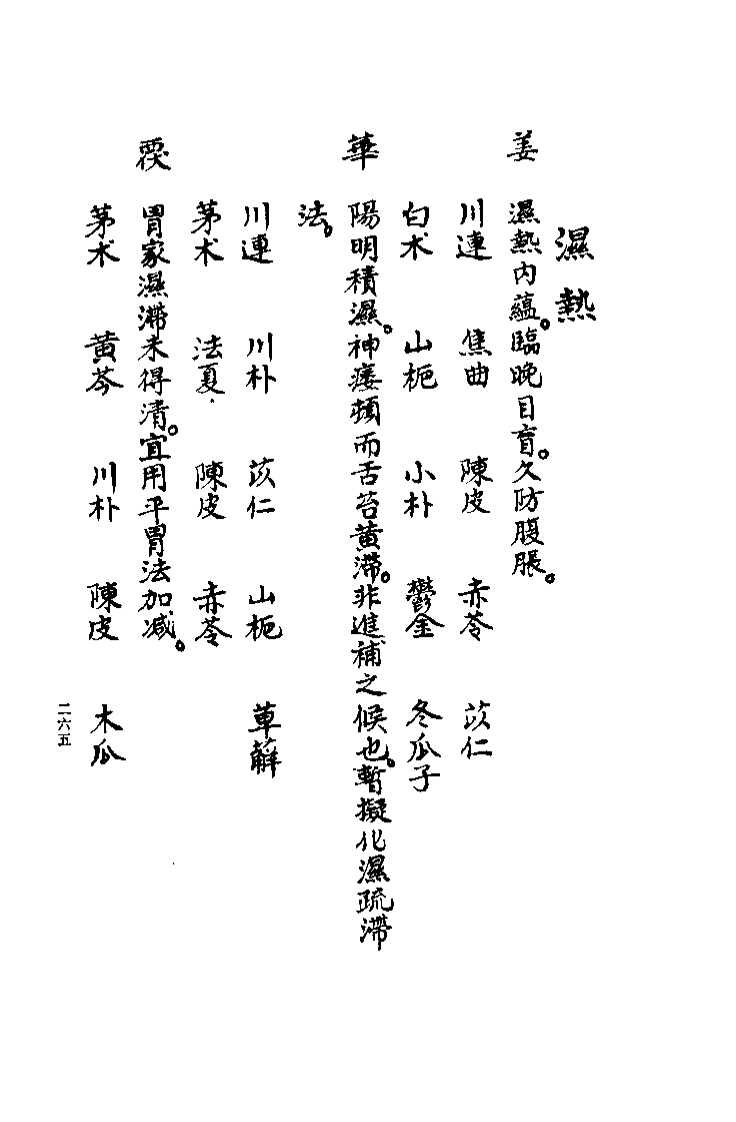 濕熱
姜 濕熱內蘊。臨晚目盲。久防腹脹。
川連 焦曲 陳皮 赤苓 苡仁
白朮 山梔 小朴 鬱金 冬瓜子
華 陽明積濕。神痿頓而舌苔黃滯。非進補之候也。暫擬化濕疏滯
法。
川連 川朴 苡仁 山梔 萆薢
茅朮 法夏 陳皮 赤苓
覆 胃家濕滯未得清。宜用平胃法加減。
茅朮 黃芩 川朴 陳皮 木瓜
二六五